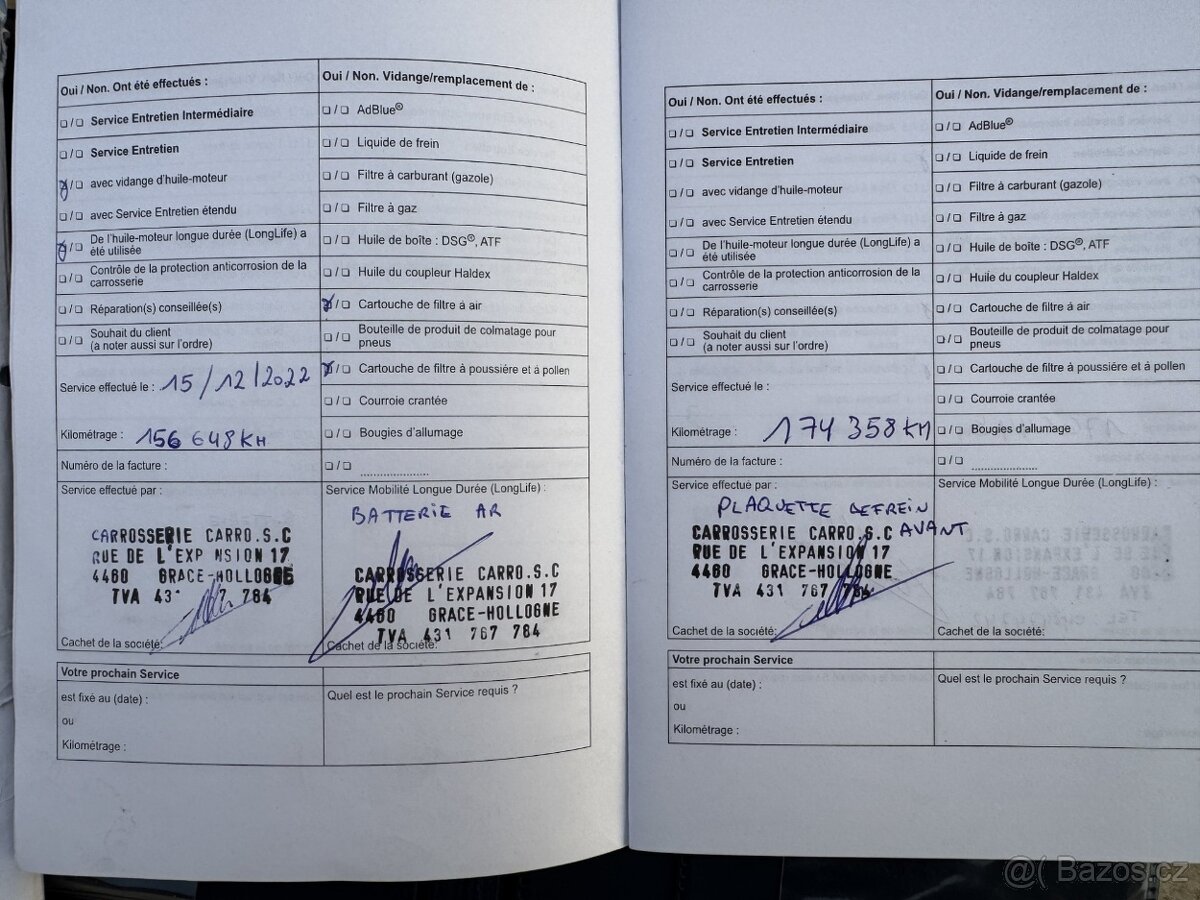 Oui / Non. Ont été effectués :
❏ / ❏ Service Entretien Intermédiaire
❏ / ❏ Service Entretien
❏ / ❏ avec vidange d'huile-moteur
❏ / ❏ avec Service Entretien étendu
❏ / ❏ De l'huile-moteur longue durée (LongLife) a
été utilisée
❏ / ❏ Contrôle de la protection anticorrosion de la
carrosserie
❏ / ❏ Réparation(s) conseillée(s)
❏ / ❏ Souhait du client
(a noter aussi sur l'ordre)
Service effectué le : 15/12/2022
Kilométrage : 156 648 KM
Numéro de la facture :
Service effectué par :
CARROSSERIE CARRO.S.C
RUE DE L'EXP NSION 17
4460 GRACE-HOLLOGNE
TVA 431 767 784
Cachet de la société:
Oui / Non. Vidange/remplacement de :
❏ / ❏ AdBlue®
❏ / ❏ Liquide de frein
❏ / ❏ Filtre à carburant (gazole)
❏ / ❏ Filtre à gaz
❏ / ❏ Huile de boîte : DSG®, ATF
❏ / ❏ Huile du coupleur Haldex
❏ / ❏ Cartouche de filtre à air
❏ / ❏ Bouteille de produit de colmatage pour
pneus
❏ / ❏ Cartouche de filtre à poussière et à pollen
❏ / ❏ Courroie crantée
❏ / ❏ Bougies d'allumage
❏ / ❏ ....................
Service Mobilité Longue Durée (LongLife) :
BATTERIE AR
CARROSSERIE CARRO.S.C
RUE DE L'EXPANSION 17
4460 GRACE-HOLLOGNE
TVA 431 767 784
Cachet de la société:
Votre prochain Service
est fixé au (date) :
ou
Kilométrage :
Quel est le prochain Service requis ?
Oui / Non. Ont été effectués :
❏ / ❏ Service Entretien Intermédiaire
❏ / ❏ Service Entretien
❏ / ❏ avec vidange d'huile-moteur
❏ / ❏ avec Service Entretien étendu
❏ / ❏ De l'huile-moteur longue durée (LongLife) a
été utilisée
❏ / ❏ Contrôle de la protection anticorrosion de la
carrosserie
❏ / ❏ Réparation(s) conseillée(s)
❏ / ❏ Souhait du client
(a noter aussi sur l'ordre)
Service effectué le :
Kilométrage : 174 358 KM
Numéro de la facture :
Service effectué par :
PLAQUETTE DEFREIN
AVANT
CARROSSERIE CARRO.S.C
RUE DE L'EXPANSION 17
4460 GRACE-HOLLOGNE
TVA 431 767 784
Cachet de la société:
Oui / Non. Vidange/remplacement de :
❏ / ❏ AdBlue®
❏ / ❏ Liquide de frein
❏ / ❏ Filtre à carburant (gazole)
❏ / ❏ Filtre à gaz
❏ / ❏ Huile de boîte : DSG®, ATF
❏ / ❏ Huile du coupleur Haldex
❏ / ❏ Cartouche de filtre à air
❏ / ❏ Bouteille de produit de colmatage pour
pneus
❏ / ❏ Cartouche de filtre à poussière et à pollen
❏ / ❏ Courroie crantée
❏ / ❏ Bougies d'allumage
❏ / ❏ ....................
Service Mobilité Longue Durée (LongLife) :
Cachet de la société:
Votre prochain Service
est fixé au (date) :
ou
Kilométrage :
Quel est le prochain Service requis ?
@( Bazos.cz